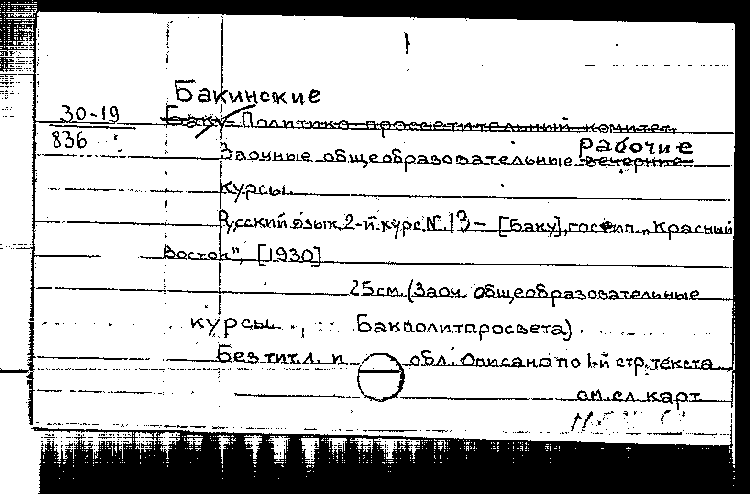 Бакинские
30-19
Баку Политико-просветительный комитет.
836
рабочие
Заочные общеобразовательные вечерние
курсы.
Русский язык 2-й курс № 13 - [Баку], гос. тип. "Красный
Восток", [1930]
25см. (Заоч. общеобразовательные
курсы. Бакполитпросвета)
Без тит.л. и обл. Описано по 1-й стр. текста
см. сл. карт